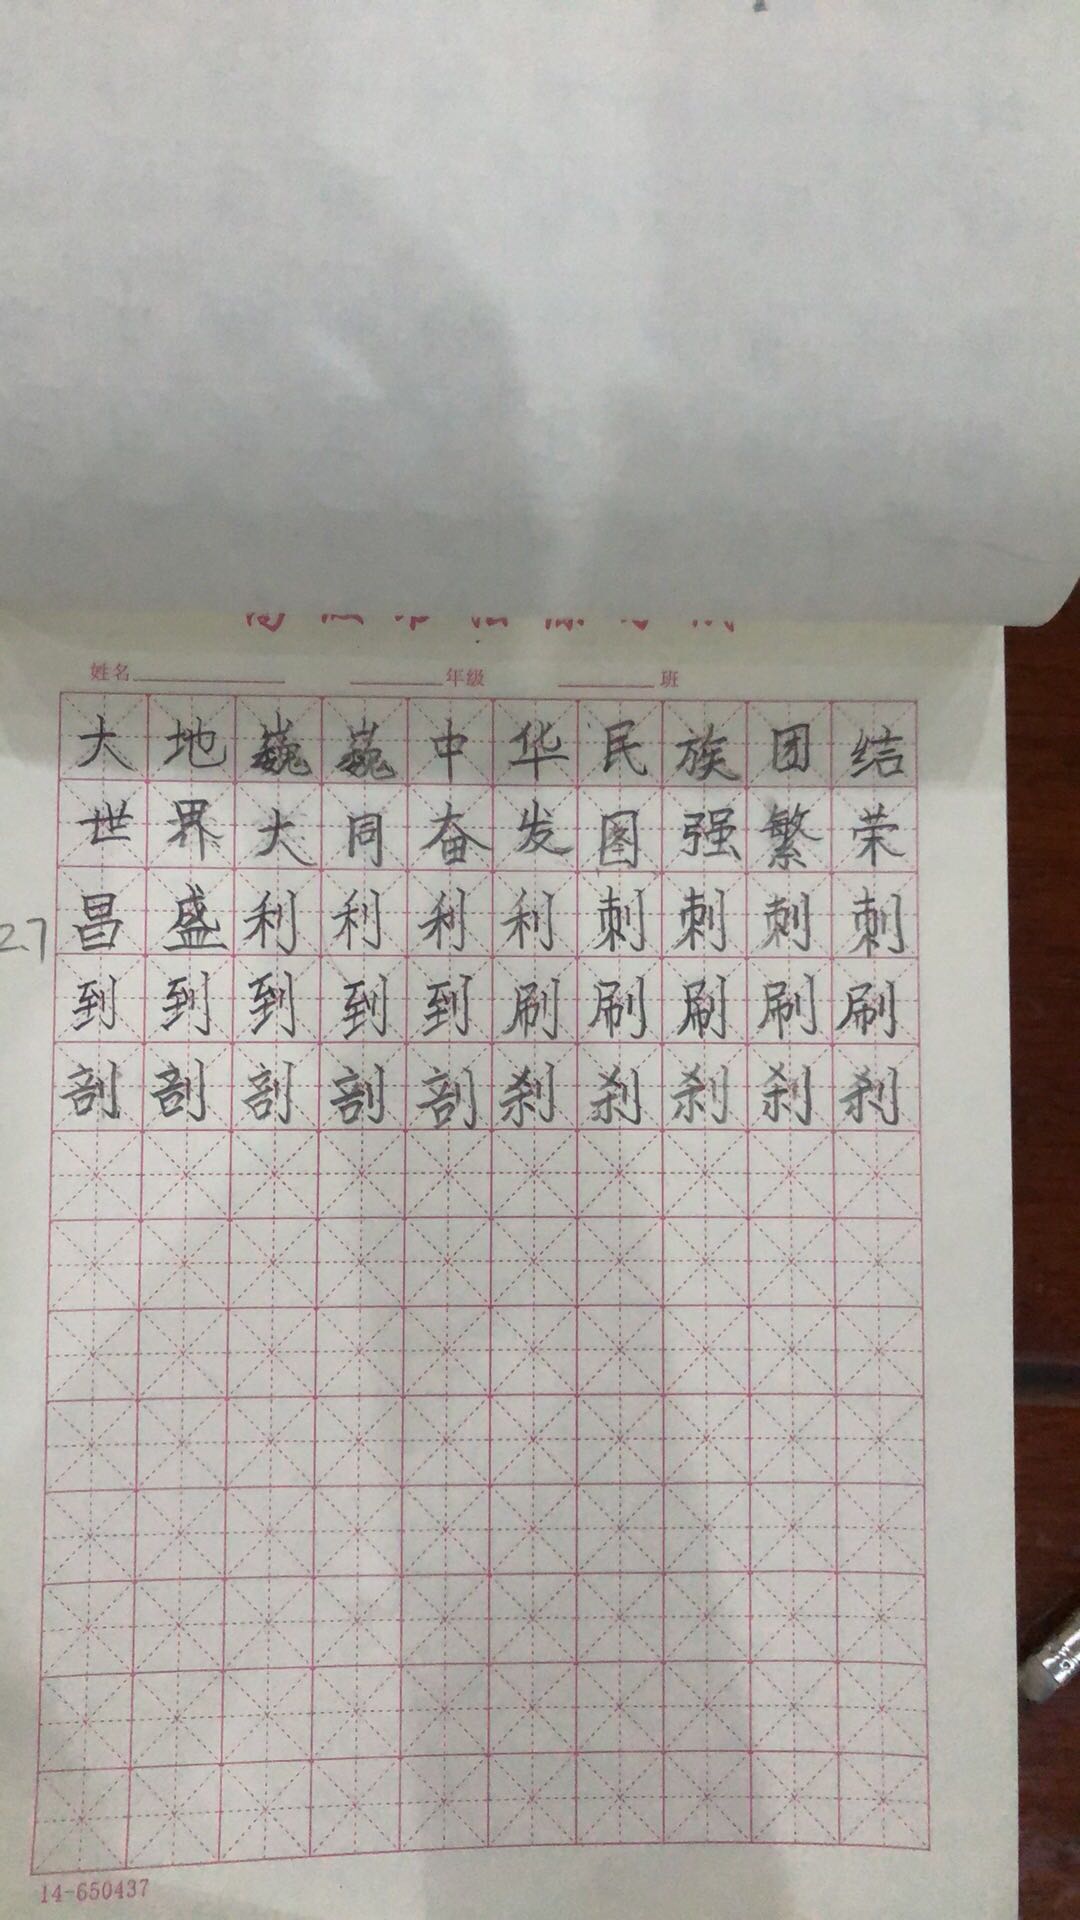 姓名 年级 班
大地巍巍中华民族团结
世界大同奋发图强繁荣
27
昌盛利利利利刺刺刺刺
到到到到到刷刷刷刷刷
剖剖剖剖剖刹刹刹刹刹
14-650437